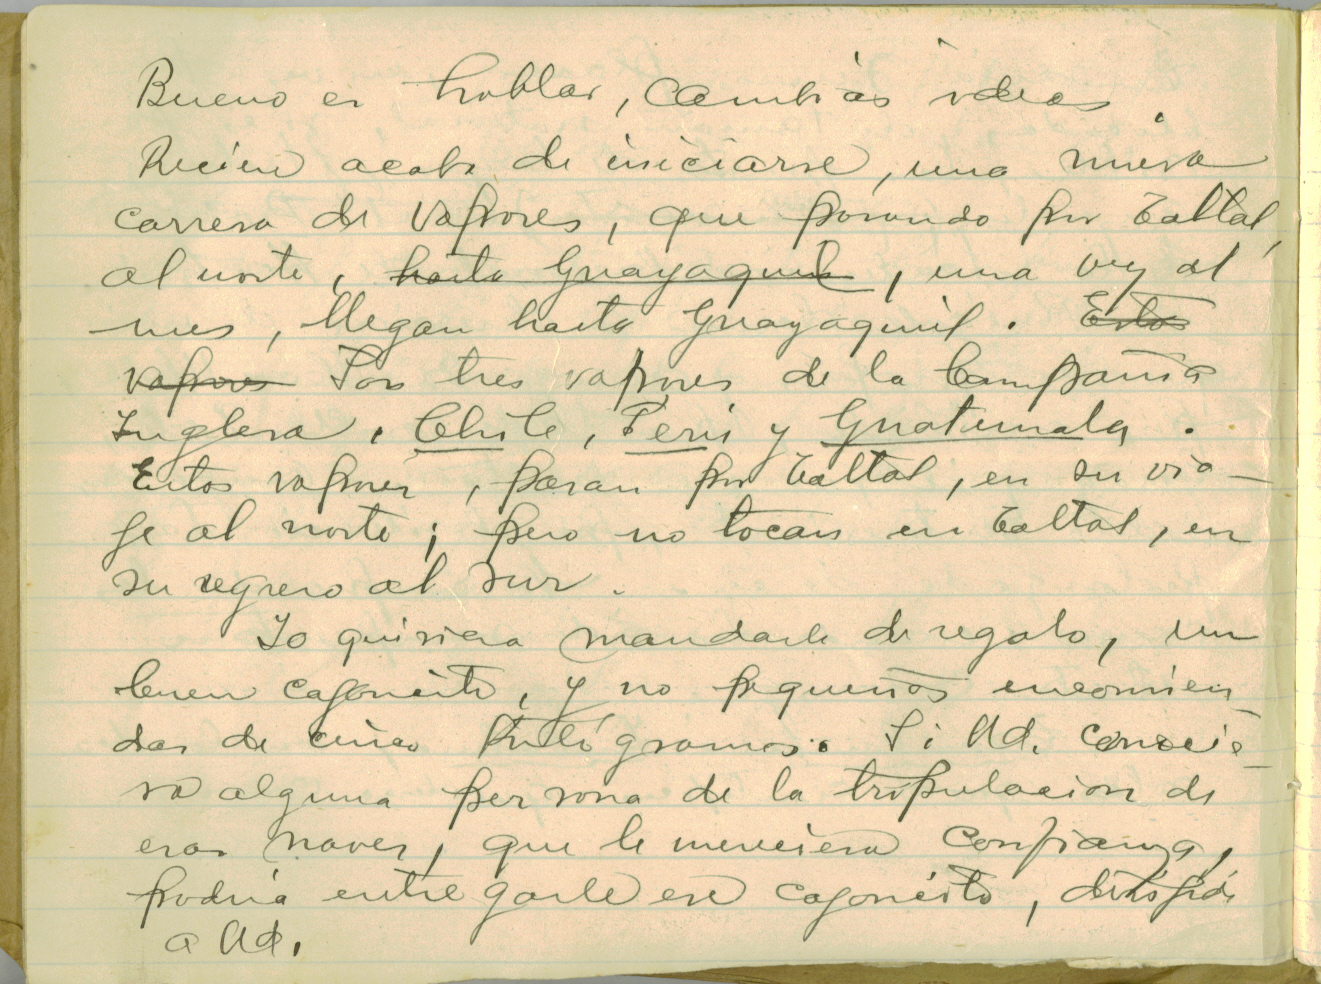 Bueno es hablar, cambiar ideas.
Recien acaba de iniciarse, una nueva
carrera de vapores, que pasando por Taltal,
al norte, hasta Guayaquil, una vez al
mes, llegan hasta Guayaquil. Estos
vapores Son tres vapores de la Compañia
Inglesa, Chile, Perú y Guatemala.
Estos vapores, pasan por Taltal, en su via-
je al norte; pero no tocan en Taltal, en
su regreso al sur.
Yo quisiera mandarle de regalo, un
buen cajoncito, y no pequeñas encomien
das de cinco kilógramos. Si Ud. conocie-
ra alguna persona de la tripulacion de
esas naves, que le mereciera confianza,
podria entregarle ese cajoncito, dirigido
a Ud.